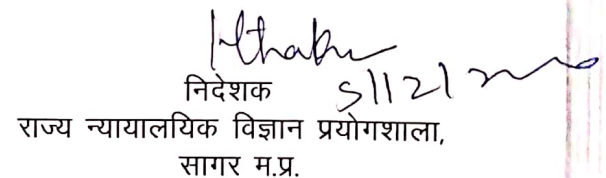 निदेशक
राज्य न्यायालयिक विज्ञान प्रयोगशाला,
सागर म.प्र.